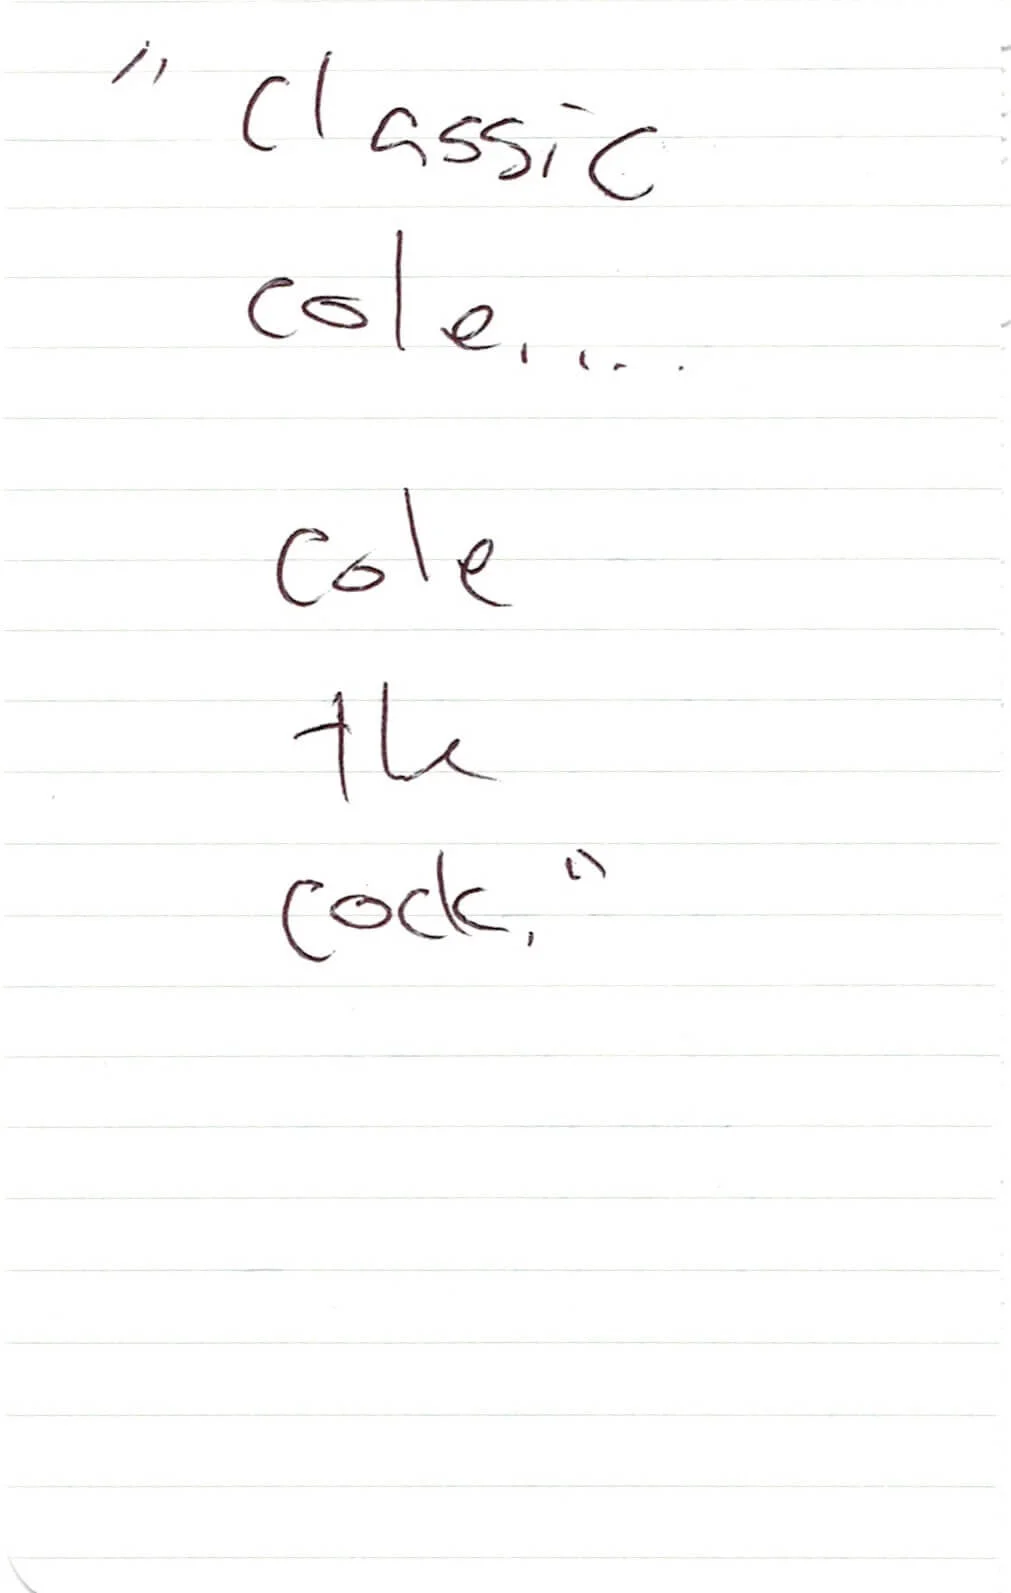 "Classic
cole....
cole
the
cock."